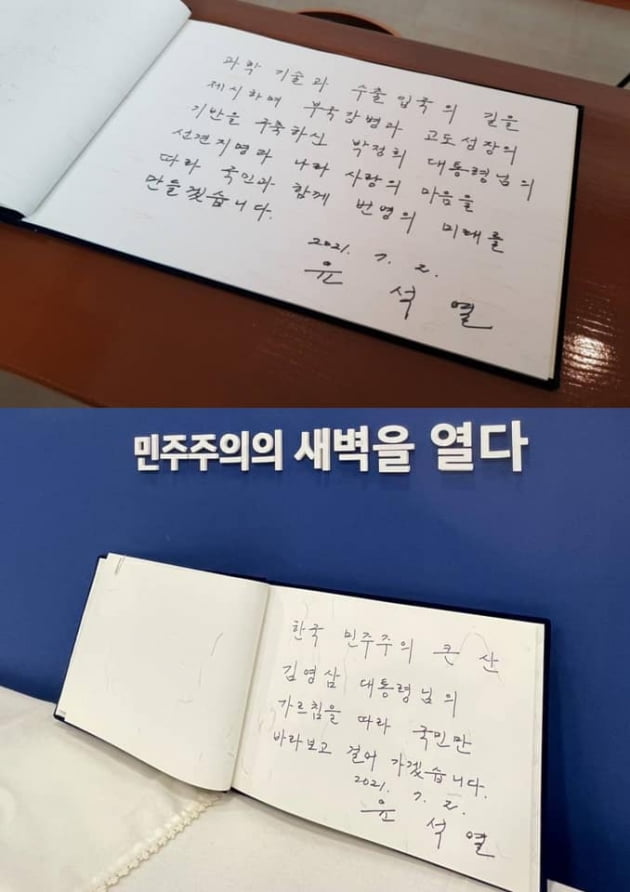 과학 기술과 수출 입국의 길을
제시하며 부국강병과 고도성장의
기반을 구축하신 박정희 대통령님의
선견지명과 나라 사랑의 마음을
따라 국민과 함께 번영의 미래를
만들겠습니다.
2021. 7. 2.
윤 석 열
민주주의의 새벽을 열다
한국 민주주의 큰 산
김영삼 대통령님의
가르침을 따라 국민만
바라보고 걸어 가겠습니다.
2021. 7. 2.
윤 석 열